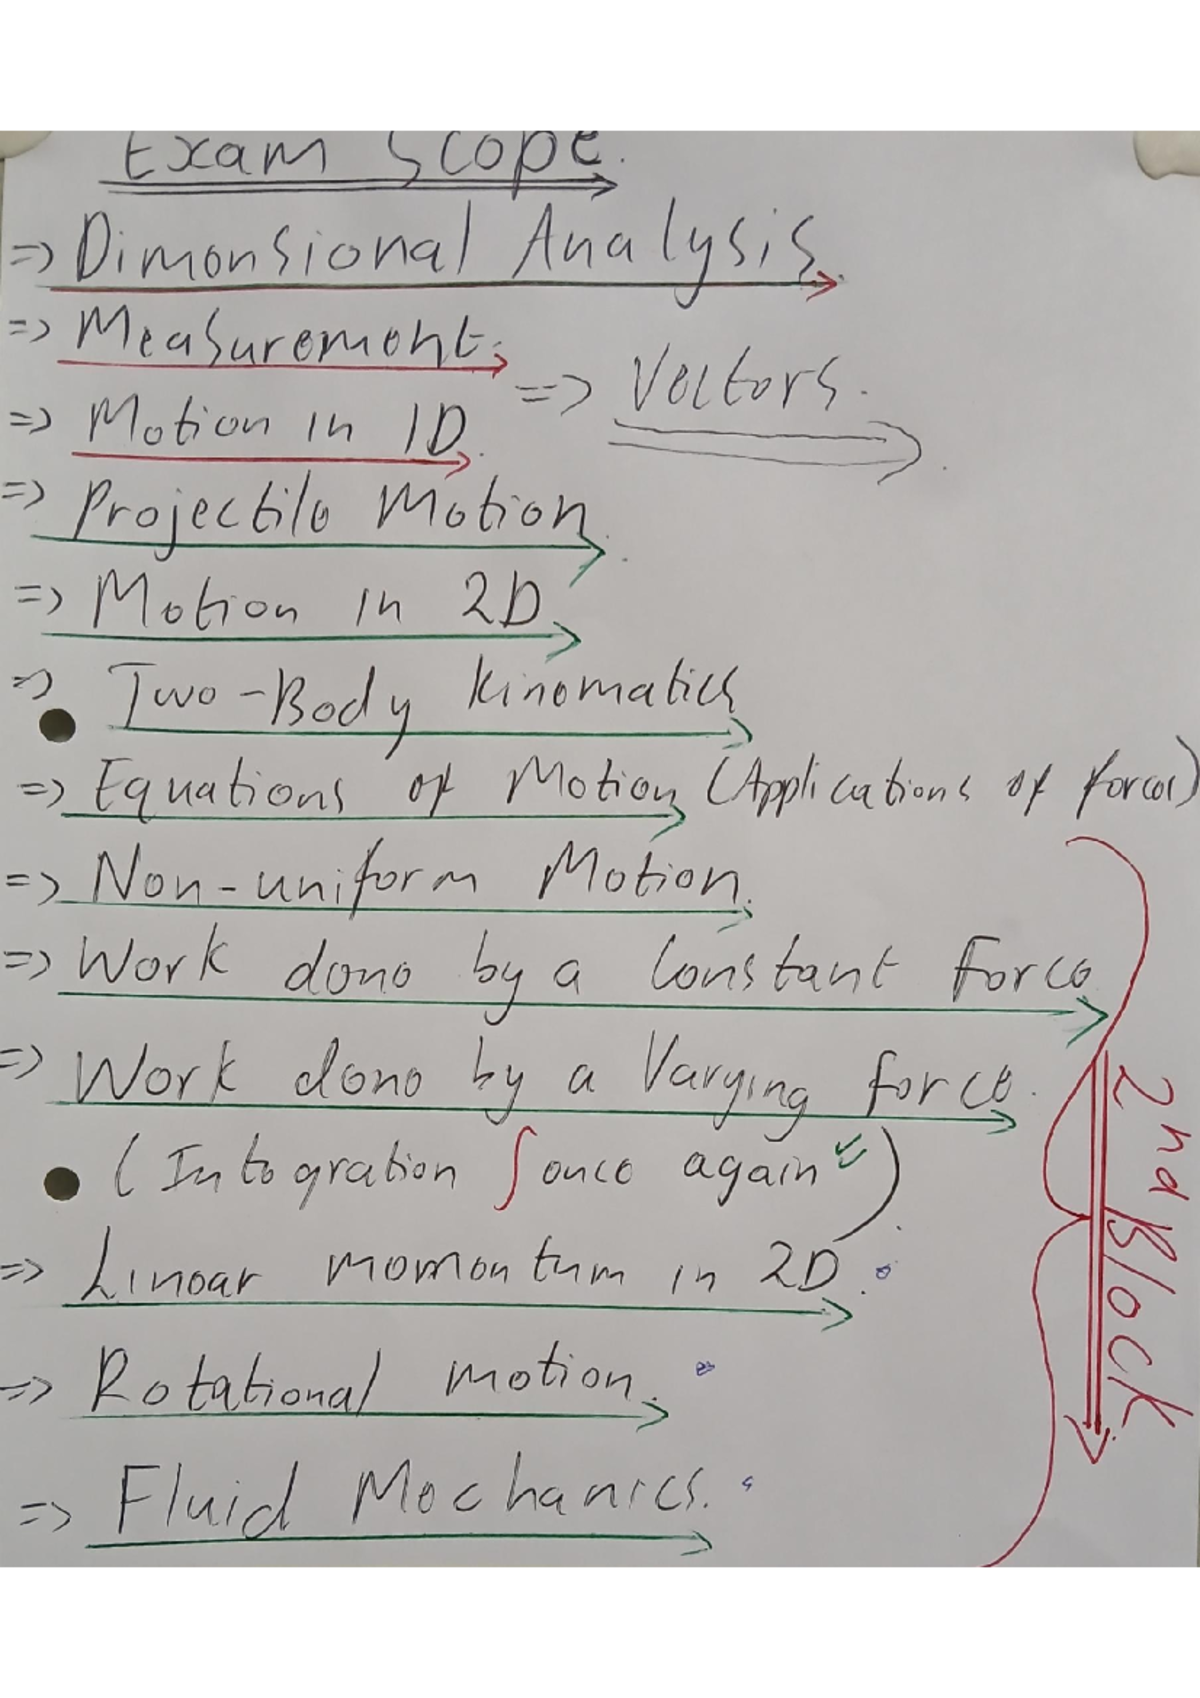 Exam Scope.
=> Dimensional Analysis.
=> Measurement.
=> Vectors.
=> Motion in 1D.
=> Projectile Motion.
=> Motion in 2D.
=> Two-Body Kinematics
=> Equations of Motion (Applications of forces)
=> Non-uniform Motion.
=> Work done by a Constant Force
=> Work done by a Varying force.
(Integration ∫ once again)
=> Linear momentum in 2D.
=> Rotational motion.
=> Fluid Mechanics.
2nd Block